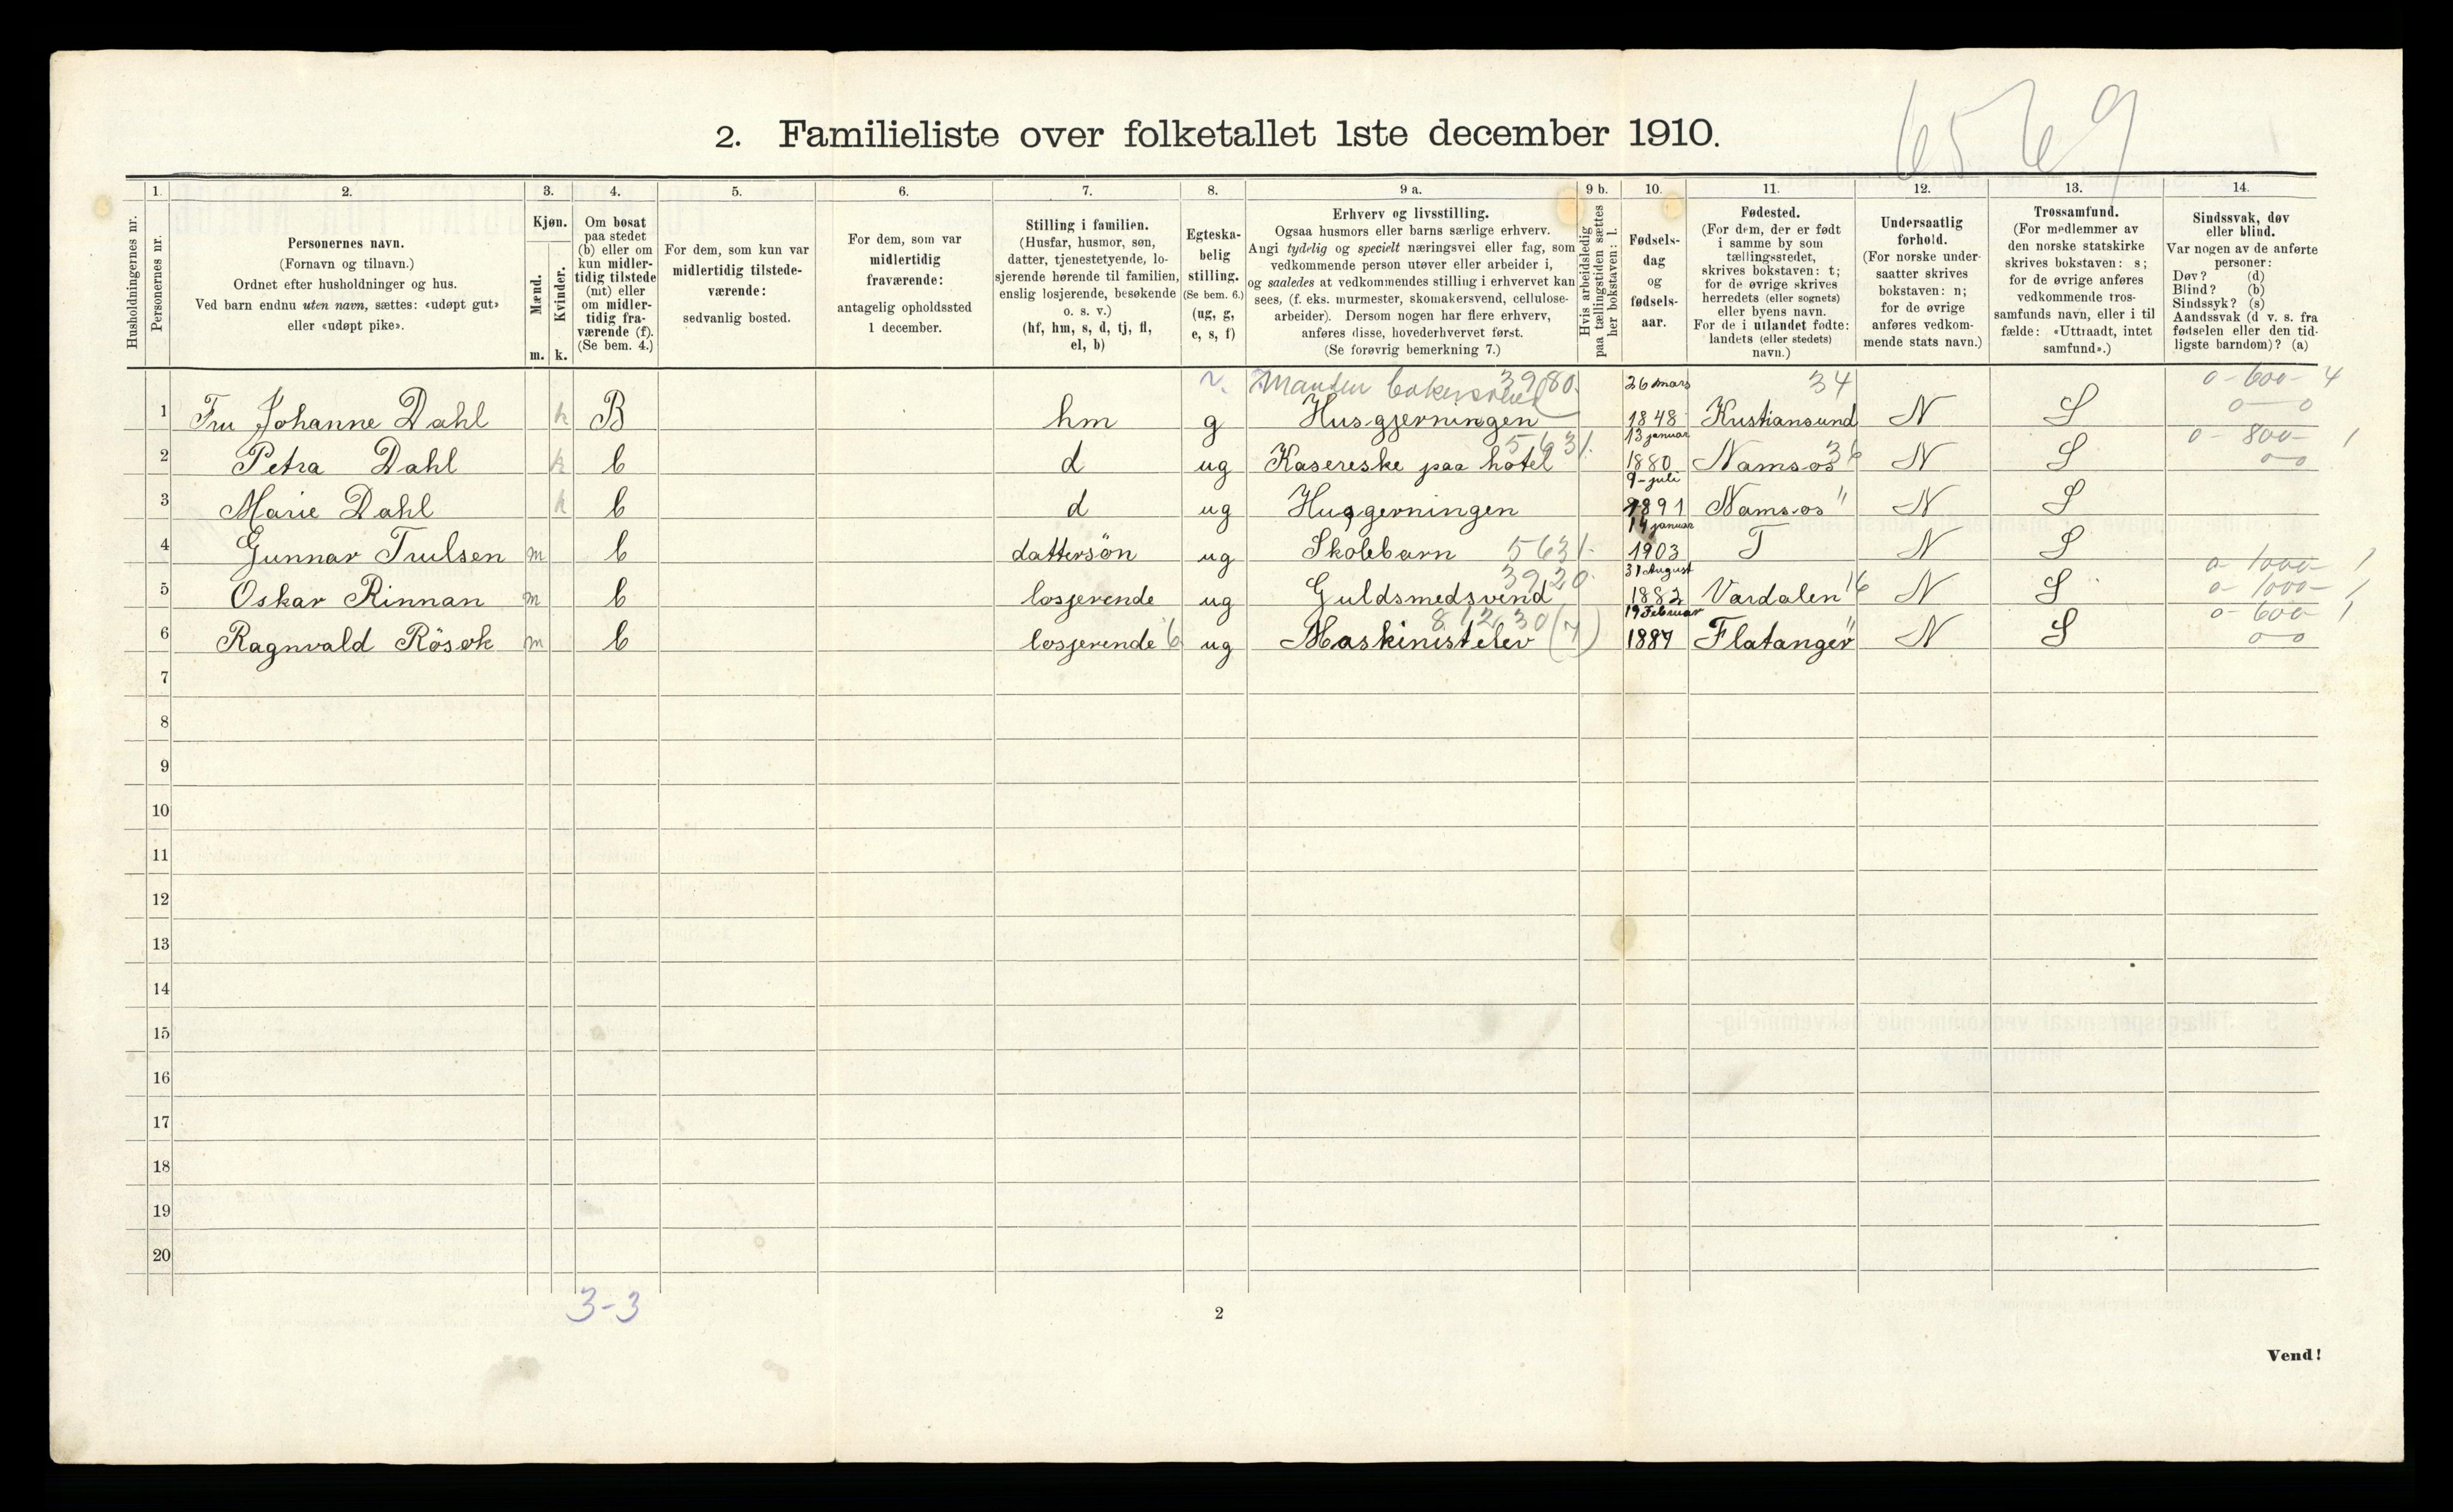 6569
2. Familieliste over folketallet 1ste december 1910.
1. 2. 3. 4. 5. 6. 7. 8. 9 a. 9 b. 10. 11. 12. 13. 14.
Husholdningernes nr.
Personernes nr.
Personernes navn.
(Fornavn og tilnavn.)
Ordnet efter husholdninger og hus.
Ved barn endnu uten navn, sættes: «udøpt gut»
eller «udøpt pike».
Kjøn.
Mænd.
Kvinder.
m. k.
Om bosat
paa stedet
(b) eller om
kun midler-
tidig tilstede
(mt) eller
om midler-
tidig fra-
værende (f).
(Se bem. 4.)
For dem, som kun var
midlertidig tilstede-
værende:
sedvanlig bosted.
For dem, som var
midlertidig
fraværende:
antagelig opholdssted
1 december.
Stilling i familien.
(Husfar, husmor, søn,
datter, tjenestetyende, lo-
sjerende hørende til familien,
enslig losjerende, besøkende
o. s. v.)
(hf, hm, s, d, tj, fl,
el, b)
Egteska-
belig
stilling.
(Se bem. 6.)
(ug, g,
e, s, f)
Erhverv og livsstilling.
Ogsaa husmors eller barns særlige erhverv.
Angi tydelig og specielt næringsvei eller fag, som
vedkommende person utøver eller arbeider i,
og saaledes at vedkommendes stilling i erhvervet kan
sees, (f. eks. murmester, skomakersvend, cellulose-
arbeider). Dersom nogen har flere erhverv,
anføres disse, hovederhvervet først.
(Se forøvrig bemerkning 7.)
Hvis arbeidsledig
paa tællingstiden sættes
her bokstaven: l.
Fødsels-
dag
og
fødsels-
aar.
Fødested.
(For dem, der er født
i samme by som
tællingsstedet,
skrives bokstaven: t;
for de øvrige skrives
herredets (eller sognets)
eller byens navn.
For de i utlandet fødte:
landets (eller stedets)
navn.)
Undersaatlig
forhold.
(For norske under-
saatter skrives
bokstaven: n;
for de øvrige
anføres vedkom-
mende stats navn.)
Trossamfund.
(For medlemmer av
den norske statskirke
skrives bokstaven: s;
for de øvrige anføres
vedkommende tros-
samfunds navn, eller i til
fælde: «Uttraadt, intet
samfund».)
Sindssvak, døv
eller blind.
Var nogen av de anførte
personer:
Døv? (d)
Blind? (b)
Sindssyk? (s)
Aandssvak (d v. s. fra
fødselen eller den tid-
ligste barndom)? (a)
Manden 3980. 26 mars 34 0-600- 4
1 Fru Johanne Dahl k B hm g Husgjerningen 1848 Kristiansund N S 0-0
5631. 13 januar 36 0-800- 1
2 Petra Dahl k b d ug Kasereske paa hotel 1880 Namsos N S 0-0
9-juli
3 Marie Dahl k b d ug Husgerningen 1891 Namsos " N S
14 januar
4 Gunnar Trulsen m b dattersön ug Skolebarn 5631. 1903 T N S
3920. 31 August 0-1000- 1
5 Oskar Rinnan m b losjerende ug Guldsmedsvend 1882 Værdalen 16 N S 0-1000- 1
81230 (7) 19 Februar 0-600- 1
6 Ragnvald Rösok m b losjerende 6 ug Maskinistelev 1887 Flatanger " N S 0-0
7
8
9
10
11
12
13
14
15
16
17
18
19
20
3-3
2
Vend!